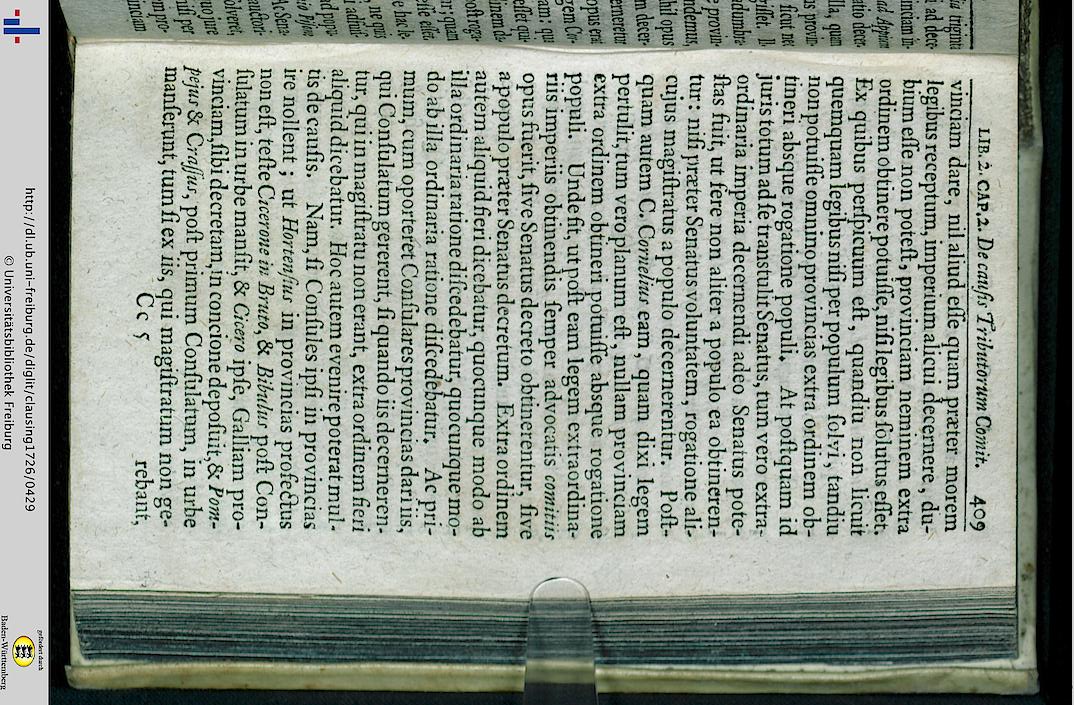 LIB. 2. CAP. 2. De causis Tributorum Comit. 409
vinciam dare, nil aliud eſſe quam præter morem
legibus receptum, imperium alicui decernere, du-
bium eſſe non poteſt, provinciam neminem extra
ordinem obtinere potuiſſe, niſi legibus ſolutus eſſet.
Ex quibus perſpicuum eſt, quandiu non licuit
quemquam legibus niſi per populum ſolvi, tandiu
non potuiſſe omnino provincias extra ordinem ob-
tineri absque rogatione populi. At poſtquam id
juris totum ad ſe transtulit Senatus, tum vero extra-
ordinaria imperia decernendi adeo Senatus pote-
ſtas fuit, ut fere non aliter a populo ea obtineren-
tur: niſi præter Senatus voluntatem, rogatione ali-
cujus magiſtratus a populo decernerentur. Poſt-
quam autem C. Cornelius eam, quam dixi legem
pertulit, tum vero planum eſt, nullam provinciam
extra ordinem obtineri potuiſſe absque rogatione
populi. Unde fit, ut poſt eam legem extraordina-
riis imperiis obtinendis ſemper advocatis comitiis
opus fuerit, ſive Senatus decreto obtinerentur, ſive
a populo præter Senatus decretum. Extra ordinem
autem aliquid fieri dicebatur, quocunque modo ab
illa ordinaria ratione diſcedebatur, quocunque mo-
do ab illa ordinaria ratione diſcedebatur. Ac pri-
mum, cum oporteret Conſulares provincias dari iis,
qui Conſulatum gererent, ſi quando iis decerneren-
tur, qui in magiſtratu non erant, extra ordinem fieri
aliquid dicebatur. Hoc autem evenire poterat mul-
tis de cauſis. Nam, ſi Conſules ipſi in provincias
ire nollent; ut Hortenſius in provincias profectus
non eſt, teſte Cicerone in Bruto, & Bibulus poſt Con-
ſulatum in urbe manſit, & Cicero ipſe, Galliam pro-
vinciam, ſibi decretam, in concione depoſuit, & Pom-
pejus & Craſſus, poſt primum Conſulatum, in urbe
manſerunt, tum ſi ex iis, qui magiſtratum non ge-
Cc 5 rebant,
http://dl.ub.uni-freiburg.de/diglit/clausing1726/0429
© Universitätsbibliothek Freiburg
gefördert durch
Baden-Württemberg